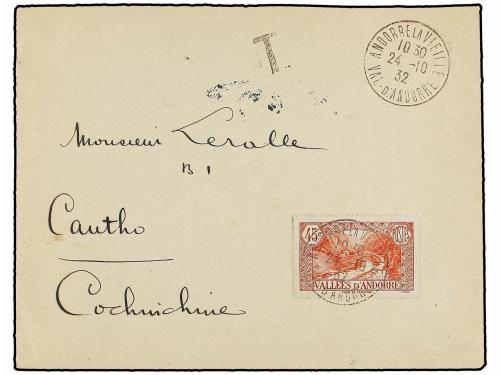 T
ANDORRE LA VIEILLE
10 30
24 -10
32
VAL. D'ANDORRE
Monsieur Leralle
B 1
Cautho
Cochinchine
45
POSTES
VALLÉES D'ANDORRE